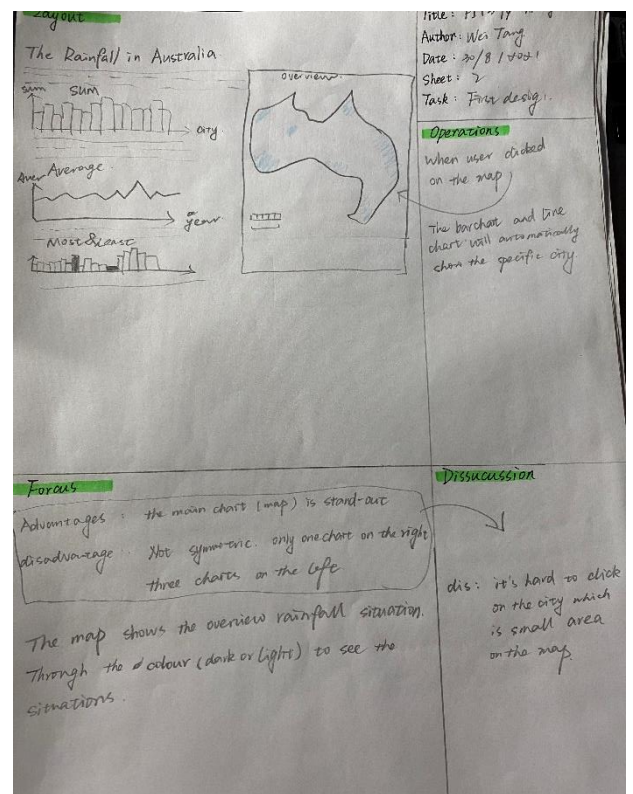 Layout
The Rainfall in Australia
sum
SUM
city
Average
Aver
year
Most & Least
overview
Title :
Author : Wei Tang
Date : 30/8/2021
Sheet : 2
Task : First design
Operations
When user clicked
on the map
The barchart and line
chart will automatically
show the specific city.
Forcus
Advantages : the main chart (map) is stand-out
disadvantage . Not symmetric. only one chart on the right
three charts on the left
The map shows the overview rainfall situation.
Through the colour (dark or light) to see the
situations.
Dissucussion
dis : it's hard to click
on the city which
is small area
on the map.